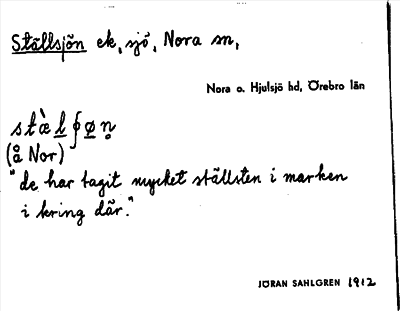 Ställsjön ek, sjö, Nora sn,
Nora o. Hjulsjö hd, Örebro län
stæ̀lʃøn
(å Nor)
"de har tagit mycket ställsten i marken
i kring där."
JÖRAN SAHLGREN 1912